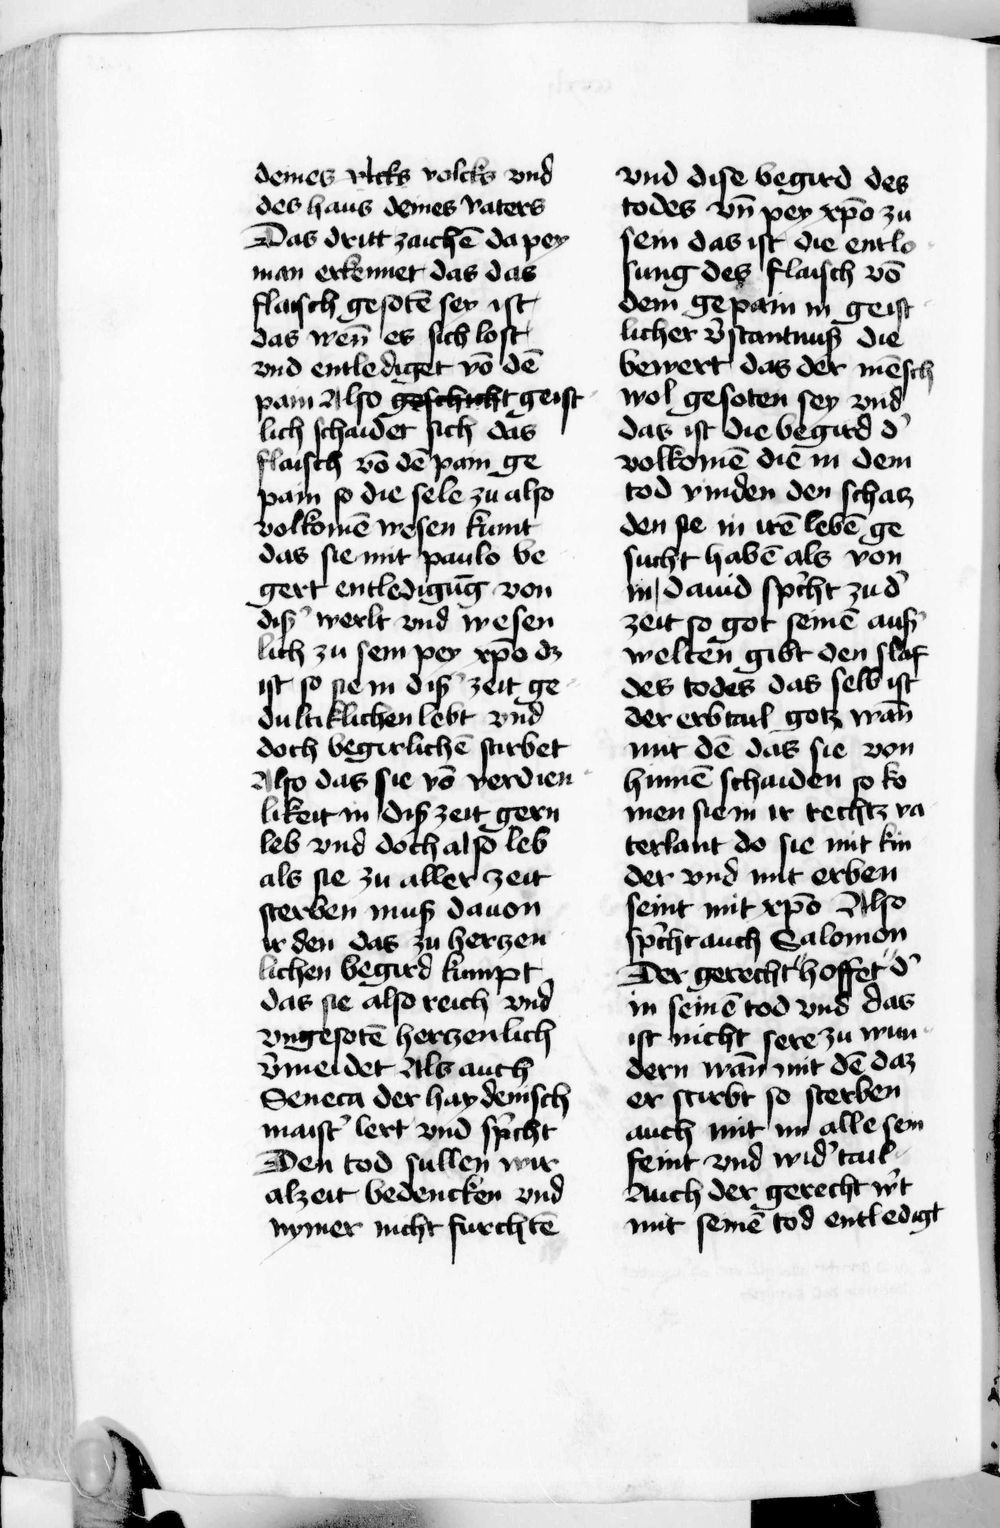 deines vicks volcks vnd
des haus deines vaters
Das dritt zaichē da pey
man erkennet das das
flaisch gesotē sey ist
das wen̄ es sich lost
vnd entlediget vō dē
pain Also geschicht geist
lich schaidet sich das
flaisch vō dē pam ge
pain so die sele zu also
volkomē wesen kumt
das sie mit paulo be
gert entledigūg von
diß' werlt vnd wesen
lich zu sein pey xp̄o dz
ist so sie in diß' zeit ge
dultiklichen lebt vnd
doch begirlichē stirbet
Also das sie vō verdien
likeit in diß zeit gern
leb vnd doch also leb
als sie zu aller zeit
sterben muß davon
ir den das zu hertzen
lichen begird kumpt
das sie also reich vnd
vngesotē hertzenlich
v̄meidet Als auch
Seneca der haydenisch
maist' lert vnd sp̄cht
Den tod sullen wir
alzeit bedencken vnd
nymer nicht furchtē
vnd dise begird des
todes vn̄ pey xp̄o zu
sein das ist die entlo
sung des flaisch vō
dem gepain in geist
licher v̄stantnuß die
bewert das der mēsch
wol gesoten sey vnd
das ist die begird d'
volkomē die in dem
tod vinden den schatz
den sie in irē lebē ge
sucht habē als von
in dauid sp̄cht zu d'
zeit so got seinē auß'
welten gibt den slaf
des todes das selb ist
der erbtail gotz wan̄
mit dē das sie von
hinnē schaiden so ko
men sie in ir rechtz va
terlant do sie mit kin
der vnd mit erben
seint mit xp̄o Also
sp̄cht auch Salomon
Der gerecht hoffet d'
in seinē tod vnd das
ist nicht sere zu wun
dern wan̄ mit dē daz
er stirbt so sterben
auch mit im alle sein
feint vnd wid'tail
Auch der gerecht w̄t
mit seinē tod entledigt